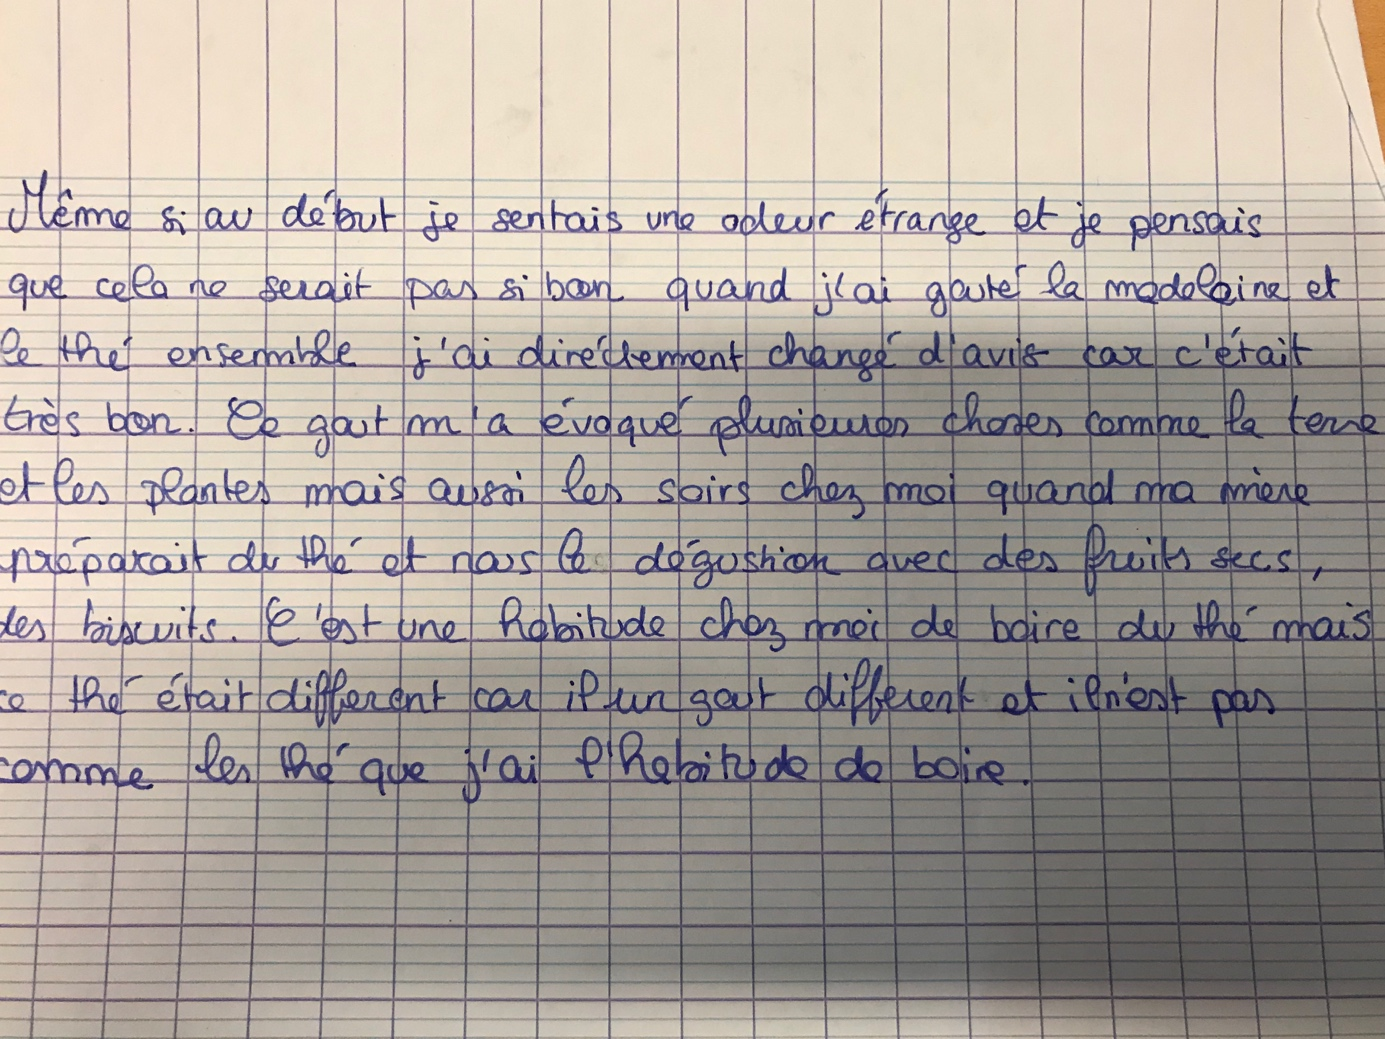 Même si au début je sentais une odeur étrange et je pensais
que cela ne serait pas si bon quand j'ai gouté la madelaine et
le thé ensemble j'ai diréctement changé d'avis car c'était
très bon. Ce gout m'a évoqué plusieures choses comme la terre
et les plantes mais aussi les soirs chez moi quand ma mère
préparait du thé et nous le dégustion avec des fruits secs,
des biscuits. C'est une habitude chez moi de boire du thé mais
ce thé était different car il un gout différent et il n'est pas
comme les thé que j'ai l'habitude de boire.